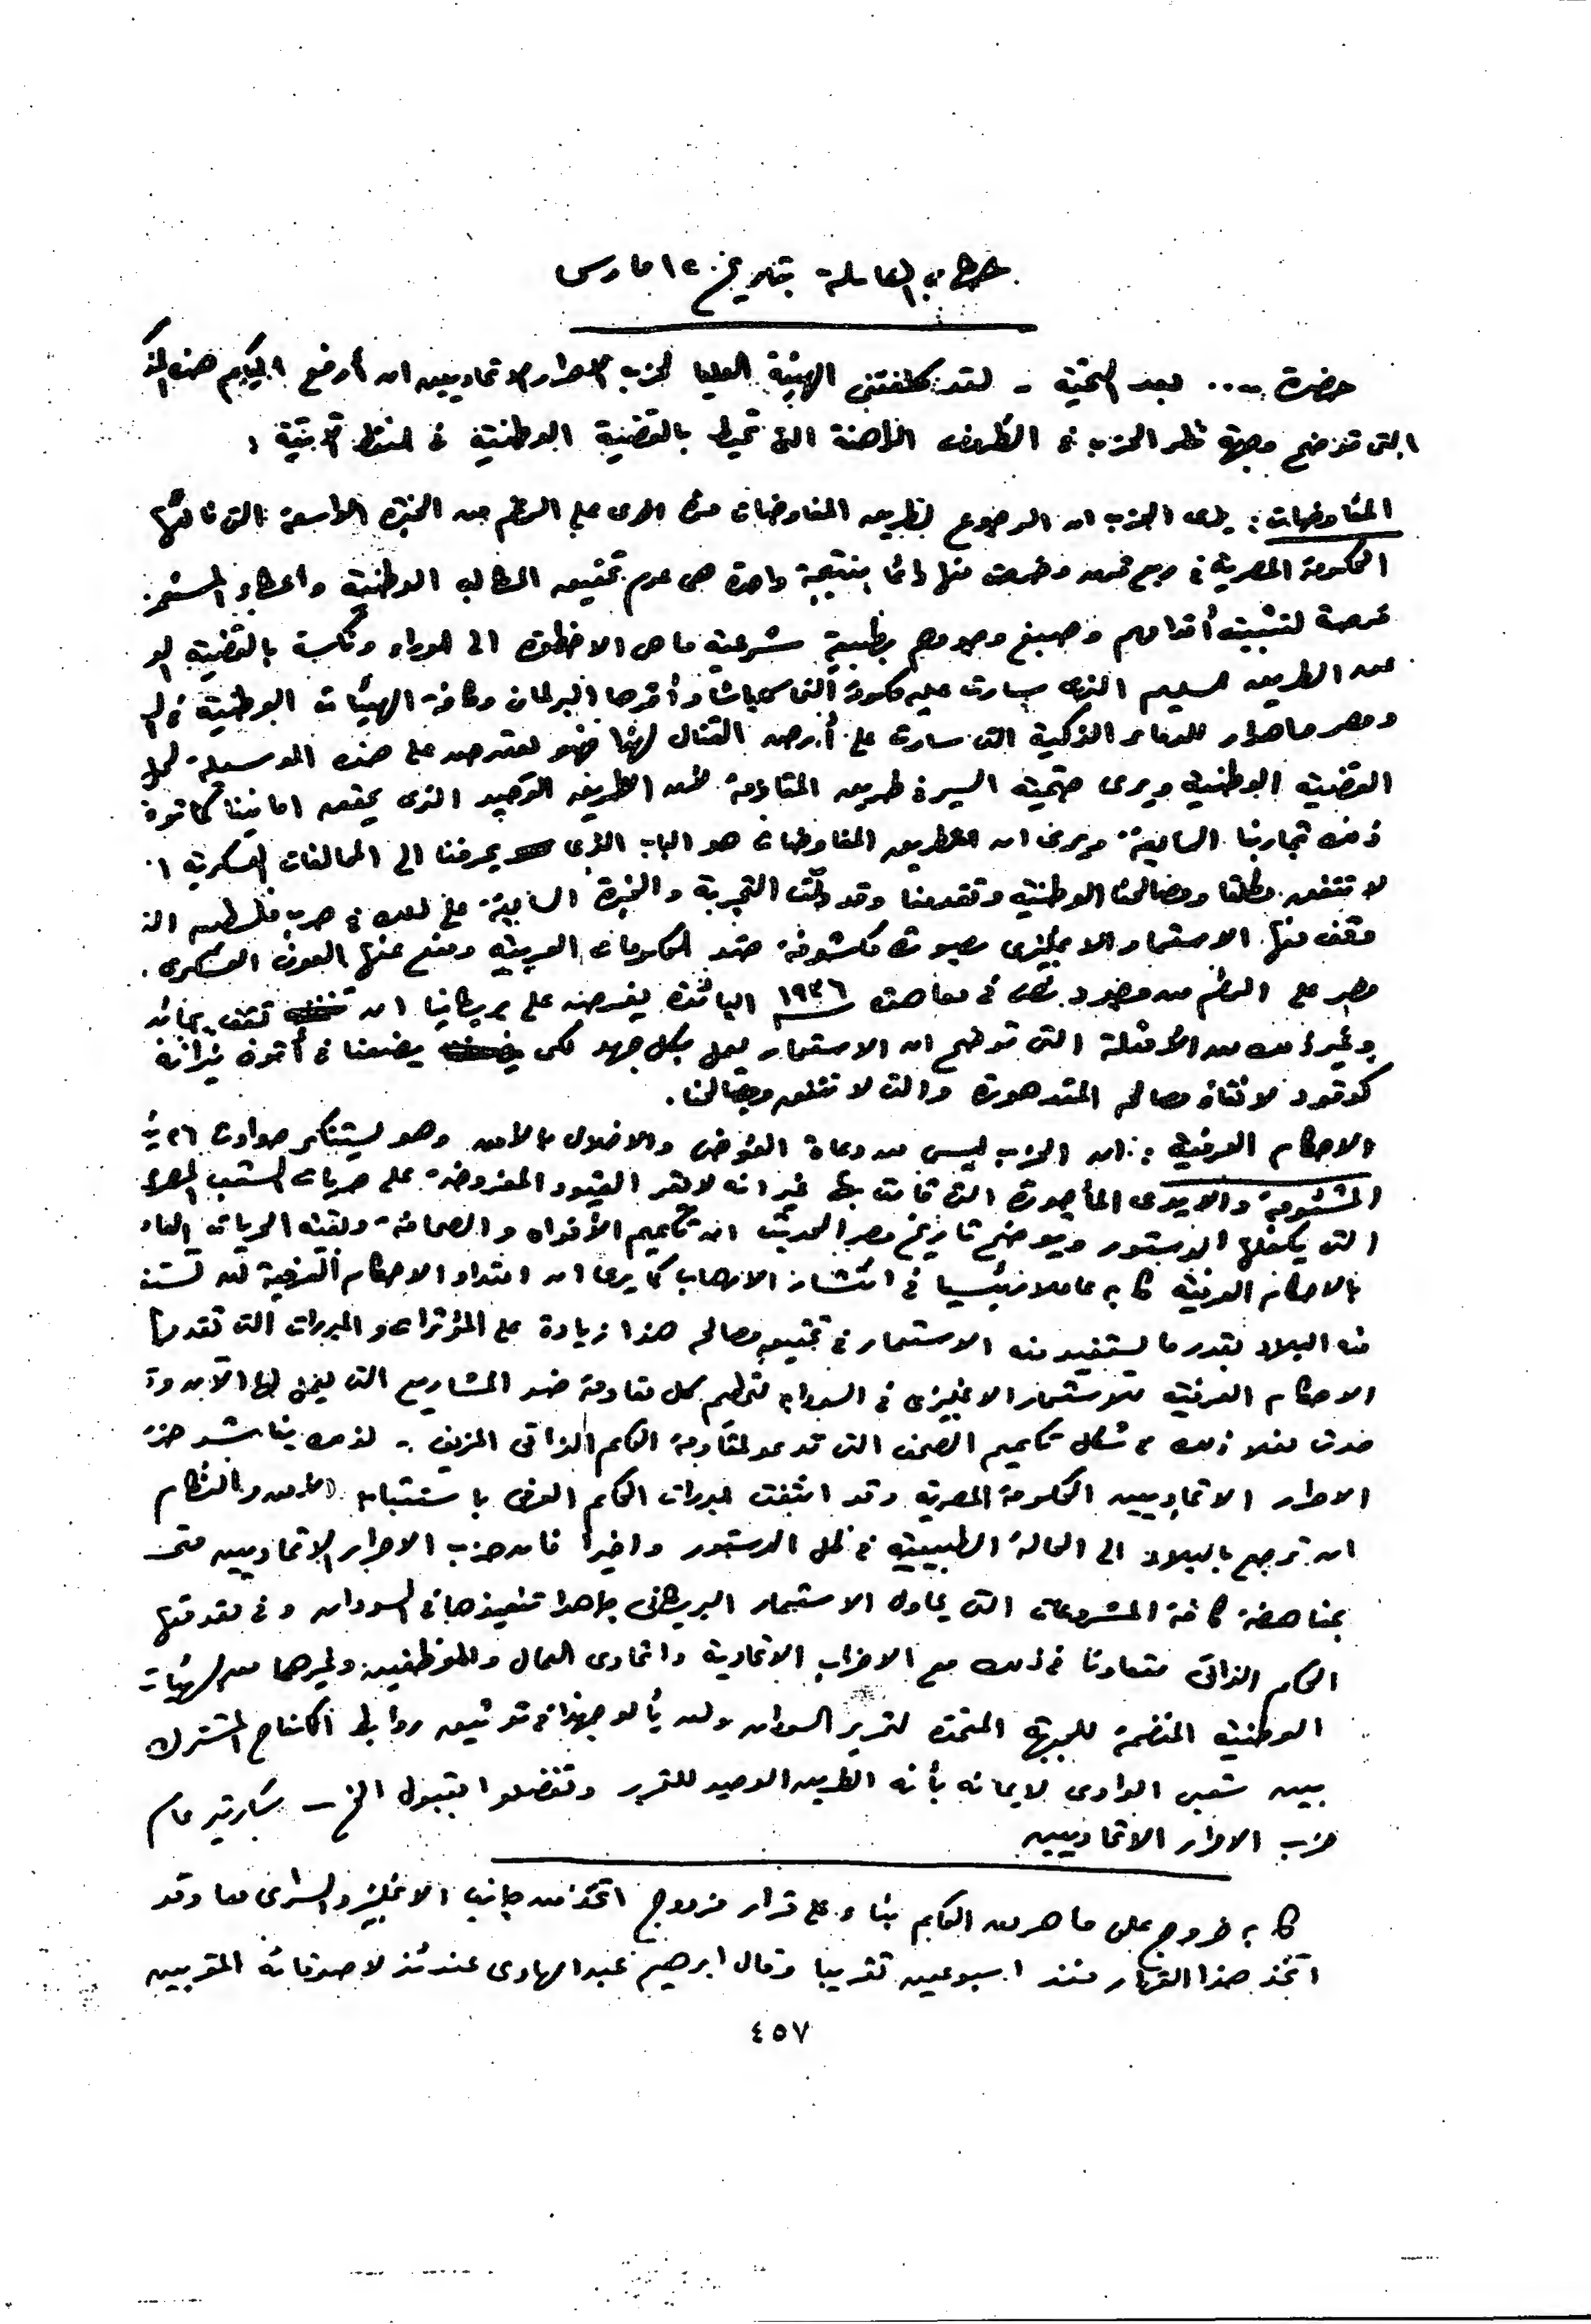 خطاب العاملة بتاريخ ١٤ مارس
حضرة .... بعد التحية - لقد كلفتنى الهيئة العليا لحزب الاحرار الاتحاديين ان أرفع اليكم هذه المذ
التى توضح وجهة نظر الحزب فى الظروف الراهنة التى تحيط بالقضية الوطنية فى النقط الآتية :
المفاوضات : يرى الحزب ان الرجوع لطريق المفاوضات مرة اخرى على الرغم من الخبرة الواسعة التى نالتها
الحكومة المصرية فى ربع قرن وخرجت منها دائما بنتيجة واحدة هى عدم تحقيق المطالب الوطنية واعطاء المستعمر
فرصة لتثبيت أقدامهم وصبغ وجودهم بطبيعة شرعية ما هى الا خطوة الى الوراء ونكسة بالقضية الو
عن الطريق السليم الذى سارت عليه حكومة النحاس باشا وأقرها البرلمان وكافة الهيئات الوطنية فى
ومصر واهدار للدماء الذكية التى سارت على أرض القنال لهذا فهو يعترض على هذه الوسيلة لحل
القضية الوطنية ويرى حتمية السير فى طريق المقاومة الطريق الوحيد الذى يحقق امانينا كما تو
ذلك تجاربنا السابقة ويرى ان طريق المفاوضات هو الباب الذى يجرفنا الى المحالفات العسكرية ا
لا تتفق مطلقا ومصالحنا الوطنية وتقدمنا وقد دلت التجربة والخبرة السابقة على ذلك فى حرب فلسطين الت
وقف منها الاستعمار الانجليزى بصورة مكشوفة ضد الحكومات العربية ومنع عنها العون العسكرى .
مصر على الرغم من وجود نص فى معاهدة ١٩٣٦ البائدة يفرض على بريطانيا ان تقف بجانب
وغير ذلك من الأمثلة التى توضح ان الاستعمار يعمل بكل جهد لكى يضعنا فى أتون نيرانه
كوقود لانقاذ مصالحه المتدهورة والتى لا تتفق ومصالحنا .
الاحكام العرفية : ان الحزب ليس من دعاة الفوضى والاخلال بالأمن وهو يستنكر حوادث ٢٦ ين
المشئومة والايدى المأجورة التى قامت بها غير انه لا يقر القيود المفروضة على حريات الشعب المصرى
التى يكفلها الدستور ويوضح تاريخ مصر الحديث ان تكميم الأفواه والصحافة وتقييد الحريات العا
بالاحكام العرفية كان عاملا رئيسيا فى انتشار الارهاب كما يرى ان امتداد الاحكام العرفية لن تستف
منه البلاد بقدر ما يستفيد منه الاستعمار فى تحقيق مصالحه هذا زيادة على المؤثرات والمبررات التى تقدمها
الاحكام العرفية للاستعمار الانجليزى فى السودان لتحطيم كل مقاومة ضد المشاريع التى يعمل لها الآن وقد
حدث فعلا ذلك فى شكل تكميم الصحف التى تدعو لمقاومة الحكم الذاتى المزيف - لذلك يناشد حزب
الاحرار الاتحاديين الحكومة المصرية وقد انتفت مبررات الحكم العرفى باستتباب الأمن والنظام
ان ترجع بالبلاد الى الحالة الطبيعية فى ظل الدستور واخيرا فان حزب الاحرار الاتحاديين
بمناهضة كافة المشروعات التى يحاول الاستعمار البريطانى جاهدا تنفيذها فى السودان وفى مقدمتها
الحكم الذاتى متعاونا فى ذلك مع الاحزاب الاتحادية واتحادى العمال والموظفين وغيرهما من الهيئات
الوطنية المنضمة للجبهة المتحدة لتحرير السودان ولن يألو جهدا فى توثيق روابط الكفاح المشترك
بين شعبى الوادى لايمانه بأنه الطريق الوحيد للتحرر وتفضلوا بقبول الخ - سكرتير عام
حزب الاحرار الاتحاديين
كان خروج على ماهر من الحكم بناء على قرار مزدوج اتخذ من جانب الانجليز والسراى معا وقد
اتخذ هذا القرار منذ اسبوعين تقريبا وقال ابرهيم عبد الهادى عندئذ لاصدقائه المقربين
٤٥٧